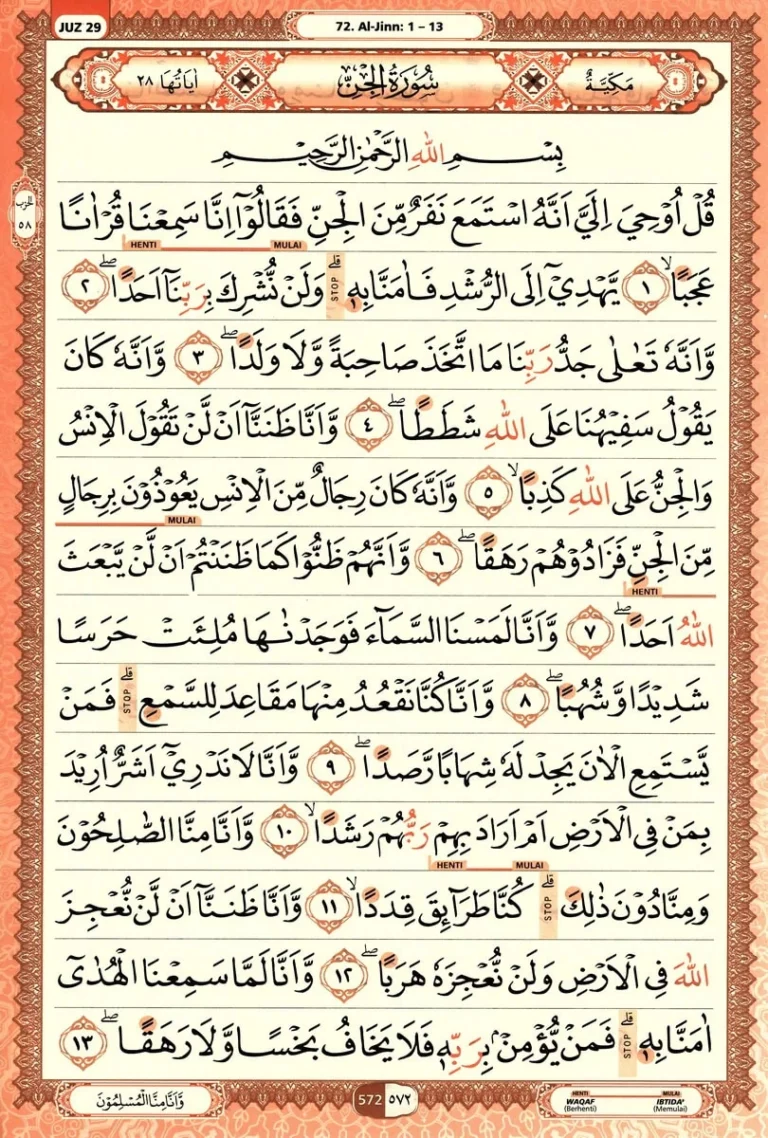 JUZ 29
72. Al-Jinn: 1 – 13
مَكِّيَّةٌ سُوْرَةُ الْجِنِّ اٰيَاتُهَا ٢٨
بِسْمِ اللّٰهِ الرَّحْمٰنِ الرَّحِيْمِ
الحزب
٥٨
قُلْ اُوْحِيَ اِلَيَّ اَنَّهُ اسْتَمَعَ نَفَرٌ مِّنَ الْجِنِّ فَقَالُوْٓا اِنَّا سَمِعْنَا قُرْاٰنًا
MULAI HENTI
عَجَبًاۙ ١ يَّهْدِيْٓ اِلَى الرُّشْدِ فَاٰمَنَّا بِهٖۗ STOP وَلَنْ نُّشْرِكَ بِرَبِّنَآ اَحَدًاۖ ٢
وَّاَنَّهٗ تَعٰلٰى جَدُّ رَبِّنَا مَا اتَّخَذَ صَاحِبَةً وَّلَا وَلَدًاۖ ٣ وَّاَنَّهٗ كَانَ
يَقُوْلُ سَفِيْهُنَا عَلَى اللّٰهِ شَطَطًاۖ ٤ وَّاَنَّا ظَنَنَّآ اَنْ لَّنْ تَقُوْلَ الْاِنْسُ
وَالْجِنُّ عَلَى اللّٰهِ كَذِبًاۙ ٥ وَّاَنَّهٗ كَانَ رِجَالٌ مِّنَ الْاِنْسِ يَعُوْذُوْنَ بِرِجَالٍ
MULAI
مِّنَ الْجِنِّ فَزَادُوْهُمْ رَهَقًاۖ ٦ وَّاَنَّهُمْ ظَنُّوْا كَمَا ظَنَنْتُمْ اَنْ لَّنْ يَّبْعَثَ
HENTI
اللّٰهُ اَحَدًاۖ ٧ وَّاَنَّا لَمَسْنَا السَّمَاۤءَ فَوَجَدْنٰهَا مُلِئَتْ حَرَسًا
شَدِيْدًا وَّشُهُبًاۖ ٨ وَّاَنَّا كُنَّا نَقْعُدُ مِنْهَا مَقَاعِدَ لِلسَّمْعِۗ STOP فَمَنْ
يَّسْتَمِعِ الْاٰنَ يَجِدْ لَهٗ شِهَابًا رَّصَدًاۖ ٩ وَّاَنَّا لَا نَدْرِيْٓ اَشَرٌّ اُرِيْدَ
بِمَنْ فِى الْاَرْضِ اَمْ اَرَادَ بِهِمْ رَبُّهُمْ رَشَدًاۙ ١٠ وَّاَنَّا مِنَّا الصّٰلِحُوْنَ
MULAI HENTI
وَمِنَّا دُوْنَ ذٰلِكَۗ STOP كُنَّا طَرَاۤىِٕقَ قِدَدًاۙ ١١ وَّاَنَّا ظَنَنَّآ اَنْ لَّنْ نُّعْجِزَ
اللّٰهَ فِى الْاَرْضِ وَلَنْ نُّعْجِزَهٗ هَرَبًاۖ ١٢ وَّاَنَّا لَمَّا سَمِعْنَا الْهُدٰىٓ
اٰمَنَّا بِهٖۗ STOP فَمَنْ يُّؤْمِنْۢ بِرَبِّهٖ فَلَا يَخَافُ بَخْسًا وَّلَا رَهَقًاۖ ١٣
وَّاَنَّا مِنَّا الْمُسْلِمُوْنَ
572 ٥٧٢
HENTI MULAI
WAQAF IBTIDA'
(Berhenti) (Memulai)